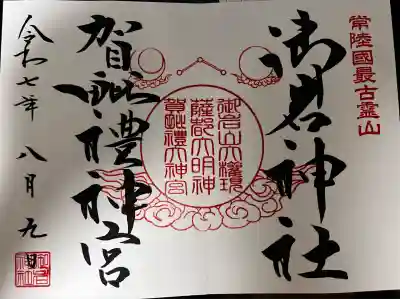 常陸國最古霊山
御岩神社
御岩山大権現
薩都大明神
賀毗禮大神宮
賀毗禮神宮
令和七年八月九日